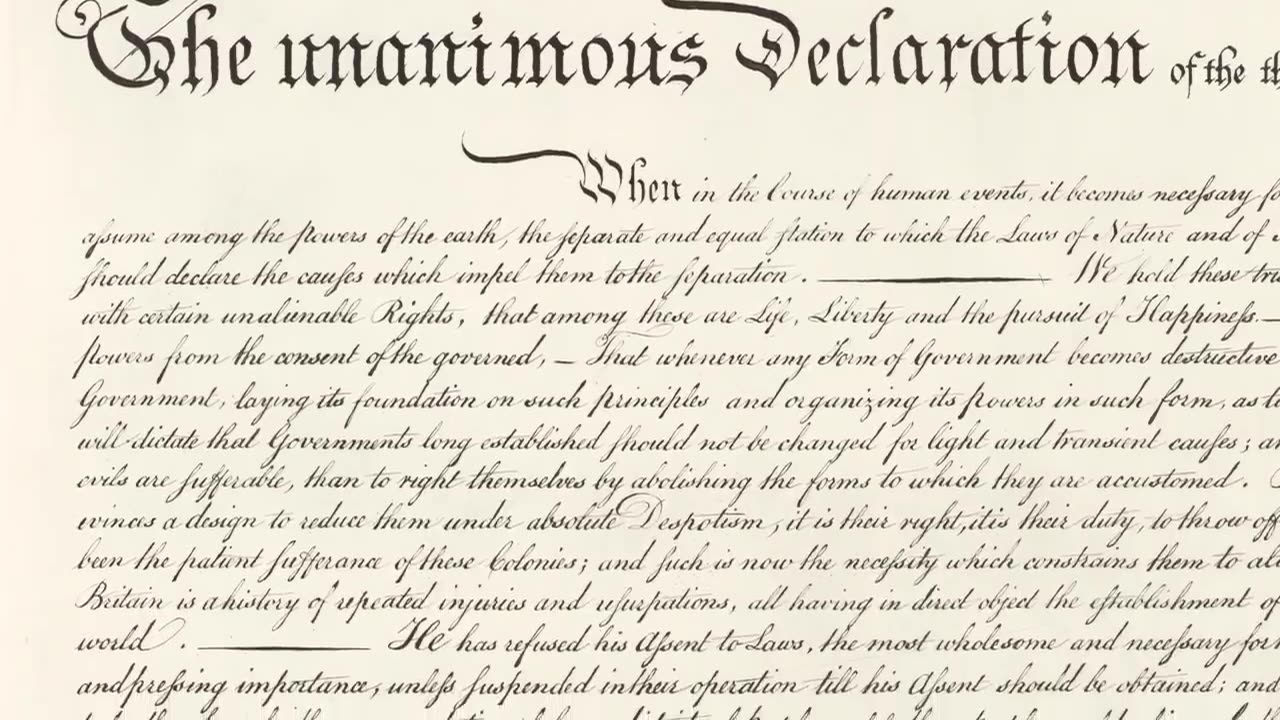 The unanimous Declaration of the th
When in the Course of human events, it becomes neceſsary fo
aſsume among the powers of the earth, the ſeparate and equal ſtation to which the Laws of Nature and of
ſhould declare the cauſes which impel them to the ſeparation. ——— We hold these tru
with certain unalienable Rights, that among these are Life, Liberty and the pursuit of Happineſs.—
powers from the consent of the governed, — That whenever any Form of Government becomes destructive
Government, laying its foundation on such principles and organizing its powers in such form, as to
will dictate that Governments long established ſhould not be changed for light and transient cauſes; an
evils are ſufferable, than to right themselves by abolishing the forms to which they are accustomed.
evinces a design to reduce them under absolute Despotism, it is their right, it is their duty, to throw off
been the patient ſufferance of these Colonies; and ſuch is now the neceſsity which constrains them to al
Britain is a history of repeated injuries and uſurpations, all having in direct object the eſtablishment of
world. ——— He has refused his Aſsent to Laws, the most wholesome and neceſsary for
and preſsing importance, unleſs ſuspended in their operation till his Aſsent should be obtained; and